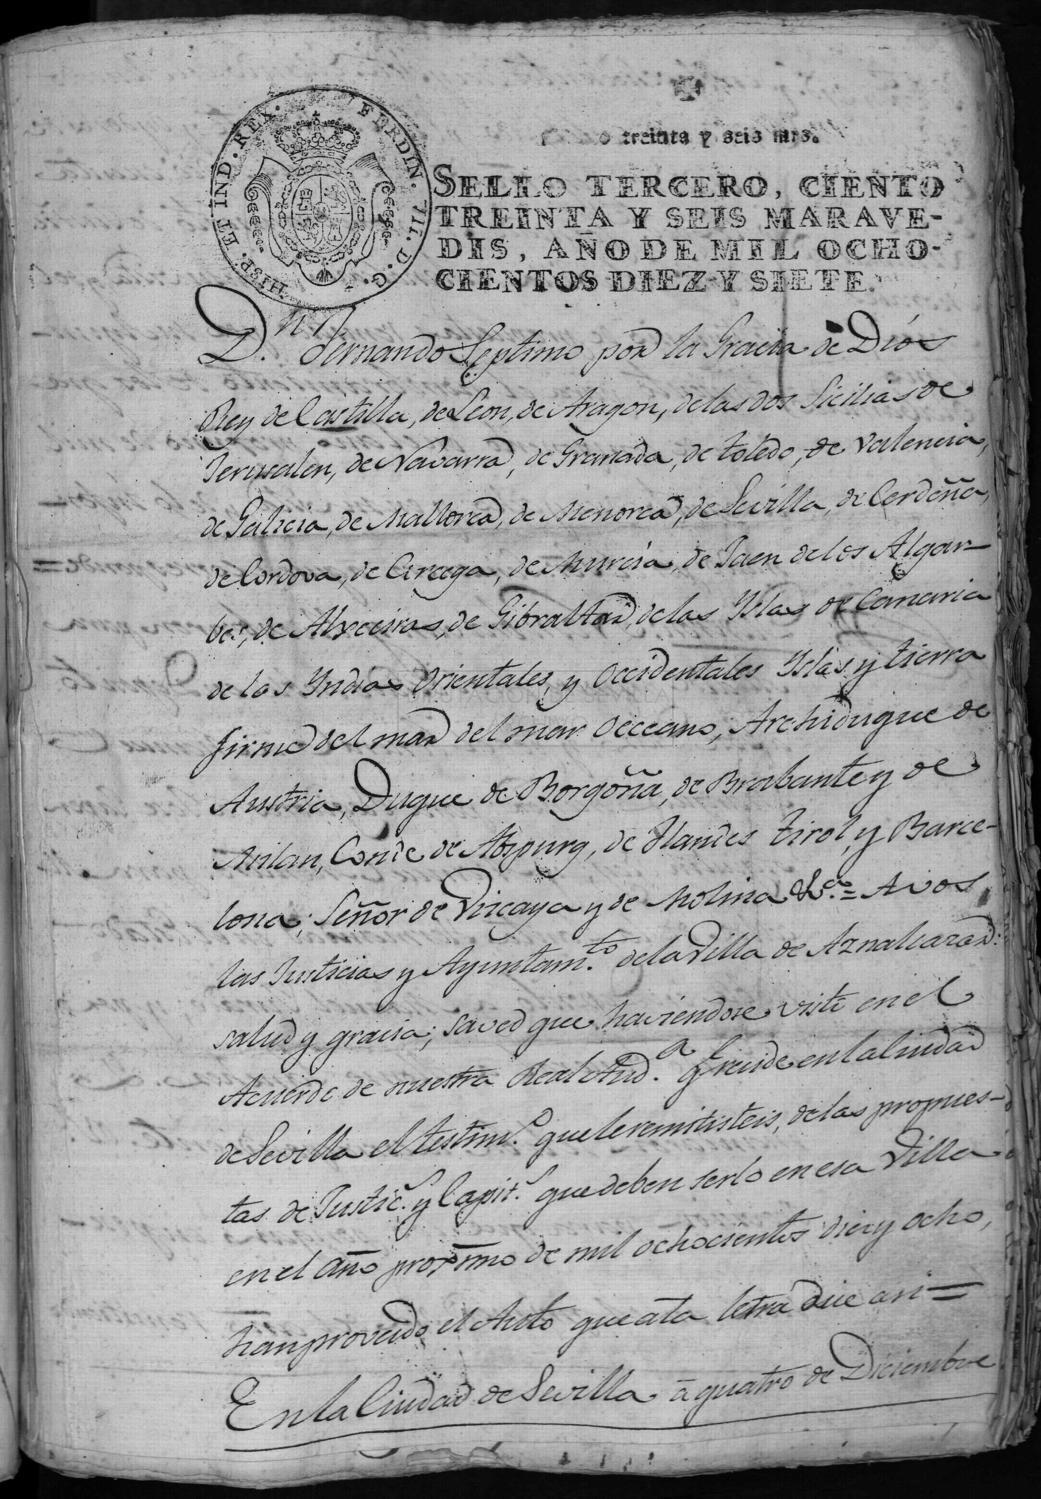 HISP. ET IND. REX. FERDIN. VII. D. G.
o treinta y seis mrs.
SELLO TERCERO, CIENTO
TREINTA Y SEIS MARAVE-
DIS, AÑO DE MIL OCHO-
CIENTOS DIEZ Y SIETE.
Dn. Fernando Septimo por la Gracia de Dios
Rey de Castilla, de Leon, de Aragon, de las dos Sicilias de
Jerusalen, de Navarra, de Granada, de Toledo, de Valencia,
de Galicia, de Mallorca, de Menorca, de Sevilla, de Cerdeña,
de Cordova, de Corcega, de Murcia, de Jaen de los Algar-
bes, de Algeciras, de Gibraltar, de las Yslas de Canaria
de las Yndias Orientales, y Occidentales Yslas, y tierra
firme del mar del mar Occeano, Archiduque de
Austria, Duque de Borgoña, de Brabante y de
Milan, Conde de Abspurg, de Flandes Tirol, y Barce-
lona, Señor de Vizcaya y de Molina &ca. = A vos
las Justicias y Ayuntamto. de la Villa de Aznalcazar:
salud y gracia; saved que haviendose visto en el
Acuerdo de nuestra Real Auda. q reside en la Ciudad
de Sevilla el testimo. que le remitisteis, de las propues-
tas de Justic. y Capit. que deben serlo en esa Villa
en el año proximo de mil ochocientos diez y ocho,
han proveido el Auto que a la letra dice asi =
En la Ciudad de Sevilla a quatro de Diciembre